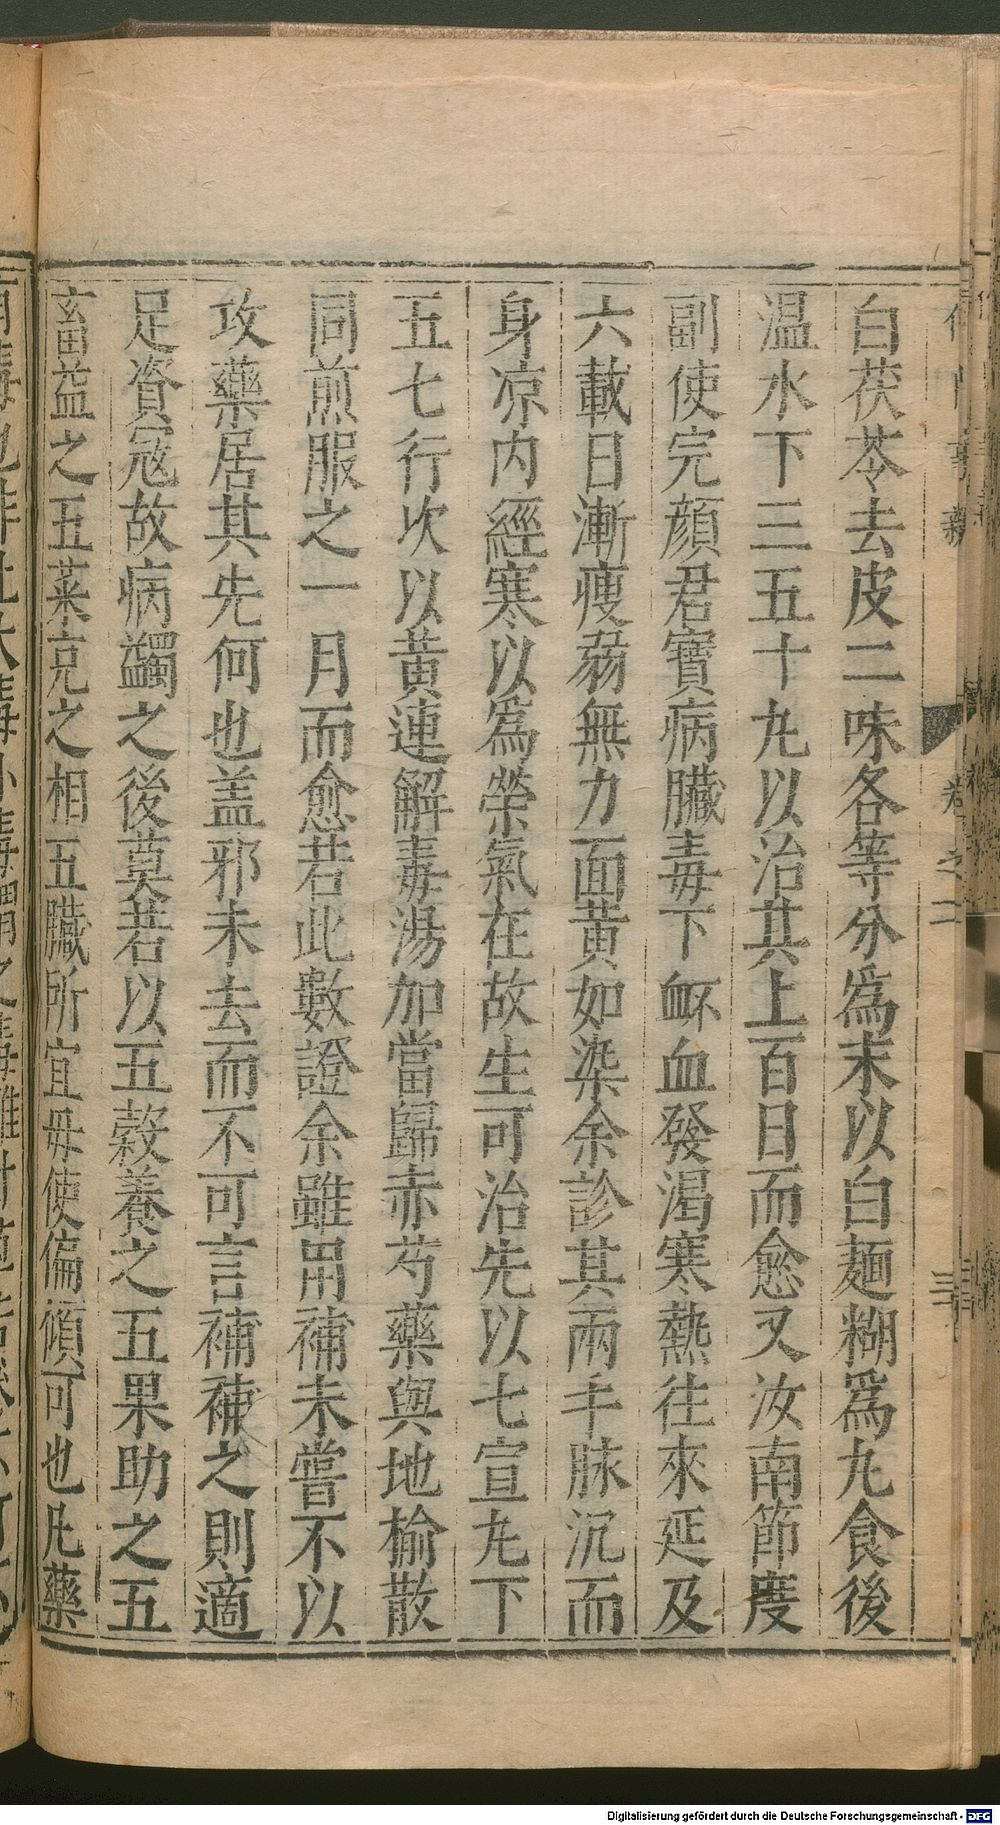 白茯苓去皮二味各等分爲末以白麵糊爲丸食後
温水下三五十丸以治其上百日而愈又汝南節度
副使完顔君寶病臟毒下衃血發渴寒熱往來延及
六載日漸瘦弱無力面黄如染余診其兩手脉沉而
身凉内經寒以爲榮氣在故生可治先以七宣丸下
五七行次以黄連解毒湯加當歸赤芍藥與地榆散
同煎服之一月而愈若此數證余雖用補未嘗不以
攻藥居其先何也盖邪未去而不可言補補之則適
足資冦故病蠲之後莫若以五穀養之五果助之五
畜益之五菜充之相五臟所宜毋使偏傾可也凡藥
卷之二
三十
Digitalisierung gefördert durch die Deutsche Forschungsgemeinschaft - DFG